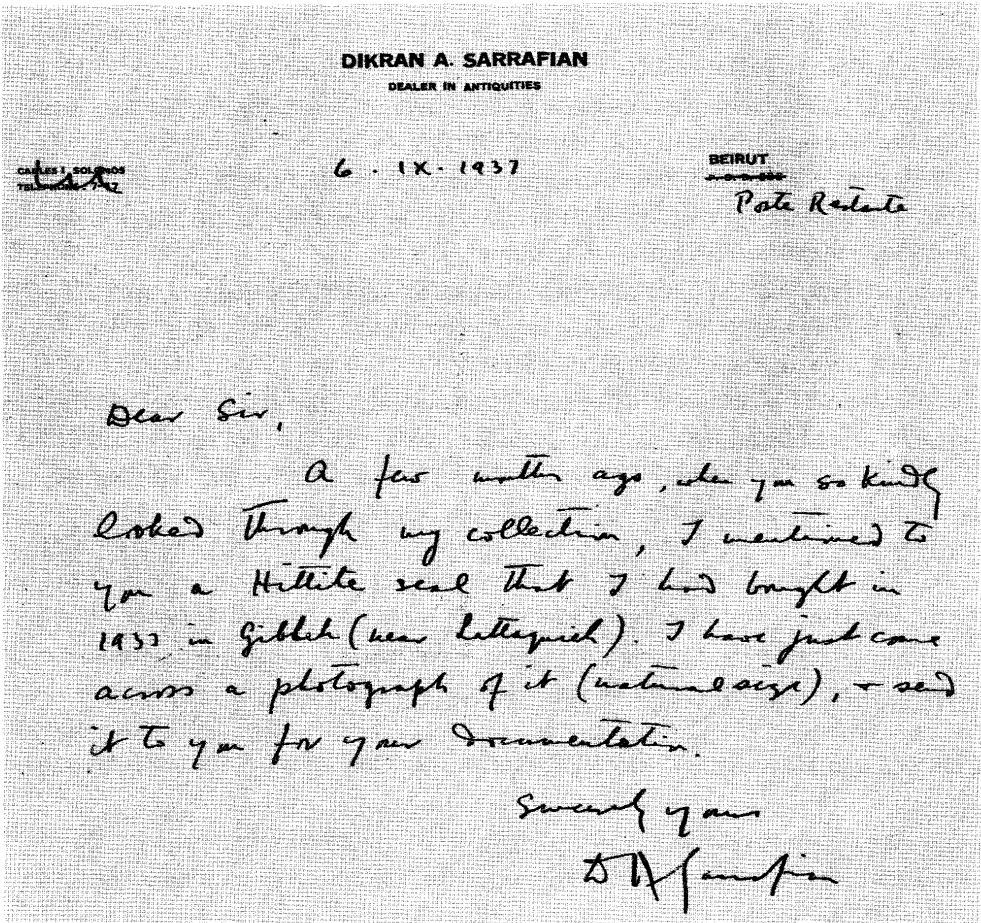 DIKRAN A. SARRAFIAN
DEALER IN ANTIQUITIES
6 . IX . 1937
BEIRUT
Poste Restante
Dear Sir,
A few months ago, when you so kindly
looked through my collection, I mentioned to
you a Hittite seal that I had bought in
in Gibleh (near Lattaquieh). I have just come
across a photograph of it (natural size), & send
it to you for your documentation.
Sincerely yours
D A Sarrafian